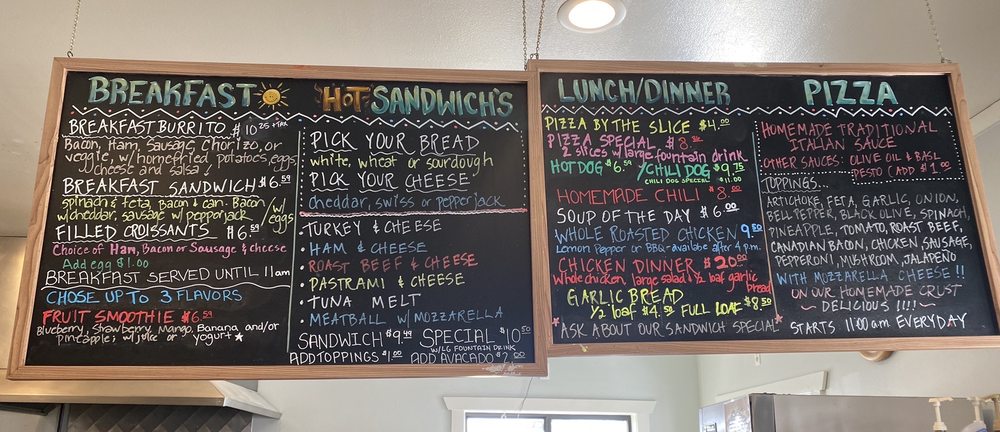 BREAKFAST
BREAKFAST BURRITO $10.25 + TAX
Bacon, Ham, Sausage, Chorizo, or
veggie, w/homefried potatoes, eggs,
cheese and salsa!
BREAKFAST SANDWICH $6.59
spinach & feta, Bacon + can. Bacon
w/cheddar, sausage w/pepperjack w/eggs
FILLED CROISSANTS $6.59
Choice of Ham, Bacon or Sausage & cheese
Add egg $1.00
BREAKFAST SERVED UNTIL 11am
CHOSE UP TO 3 FLAVORS
FRUIT SMOOTHIE $6.59
Blueberry, Strawberry, Mango, Banana and/or
pineapple; w/juice or yogurt
HOT SANDWICH'S
PICK YOUR BREAD
white, wheat or sourdough
PICK YOUR CHEESE
cheddar, swiss or pepperjack
TURKEY & CHEESE
• HAM & CHEESE
• ROAST BEEF & CHEESE
• PASTRAMI & CHEESE
• TUNA MELT
• MEATBALL W/ MOZZARELLA
SANDWICH $9.49 SPECIAL $10.50
W/LG FOUNTAIN DRINK
ADD TOPPINGS $1.00 ADD AVACADO $2.00
LUNCH/DINNER
PIZZA BY THE SLICE $4.00
PIZZA SPECIAL $8
2 slices w/large fountain drink
HOT DOG $6.50 / CHILI DOG $9.75
CHILI DOG SPECIAL $11.00
HOMEMADE CHILI $8.00
SOUP OF THE DAY $6.00
WHOLE ROASTED CHICKEN 9.80
Lemon Pepper or BBQ - availabe after 4 p.m.
CHICKEN DINNER $20.00
Whole chicken, large salad & ½ loaf garlic
bread
GARLIC BREAD
½ loaf $4.50 FULL LOAF $8.50
*ASK ABOUT OUR SANDWICH SPECIAL*
PIZZA
HOMEMADE TRADITIONAL
ITALIAN SAUCE
OTHER SAUCES: OLIVE OIL & BASL
PESTO (ADD $1.00
TOPPINGS...
ARTICHOKE, FETA, GARLIC, ONION,
BELL PEPPER, BLACK OLIVE, SPINACH,
PINEAPPLE, TOMATO, ROAST BEEF,
CANADIAN BACON, CHICKEN, SAUSAGE,
PEPPERONI, MUSHROOM, JALAPEÑO
WITH MOZZARELLA CHEESE!!
ON OUR HOMEMADE CRUST
~ DELICIOUS!!!! ~
STARTS 11:00am EVERYDAY